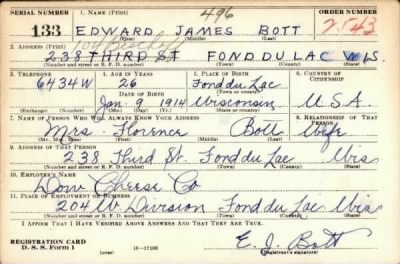 SERIAL NUMBER 1. NAME (Print) 496 ORDER NUMBER
133 EDWARD JAMES BOTT 2543
(First) (Middle) (Last)
2. ADDRESS (Print)
238 THIRD ST FOND DU LAC WIS.
(Number and street or R. F. D. number) (Town) (County) (State)
3. TELEPHONE 4. AGE IN YEARS 5. PLACE OF BIRTH 6. COUNTRY OF CITIZENSHIP
6434W 26 Fond du Lac
DATE OF BIRTH (Town or county)
Jan. 9 1914 Wisconsin U.S.A.
(Exchange) (Number) (Mo.) (Day) (Yr.) (State or country)
7. NAME OF PERSON WHO WILL ALWAYS KNOW YOUR ADDRESS 8. RELATIONSHIP OF THAT PERSON
Mrs. Florence Bott Wife
(Mr., Mrs., Miss) (First) (Middle) (Last)
9. ADDRESS OF THAT PERSON
238 Third St. Fond du Lac Wis
(Number and street or R. F. D. number) (Town) (County) (State)
10. EMPLOYER'S NAME
Cheese Co
11. PLACE OF EMPLOYMENT OR BUSINESS
204 W. Division Fond du Lac Wis
(Number and street or R. F. D. number) (Town) (County) (State)
I AFFIRM THAT I HAVE VERIFIED ABOVE ANSWERS AND THAT THEY ARE TRUE.
REGISTRATION CARD
D. S. S. Form 1 16-17105 E. J. Bott
(Registrant's signature)